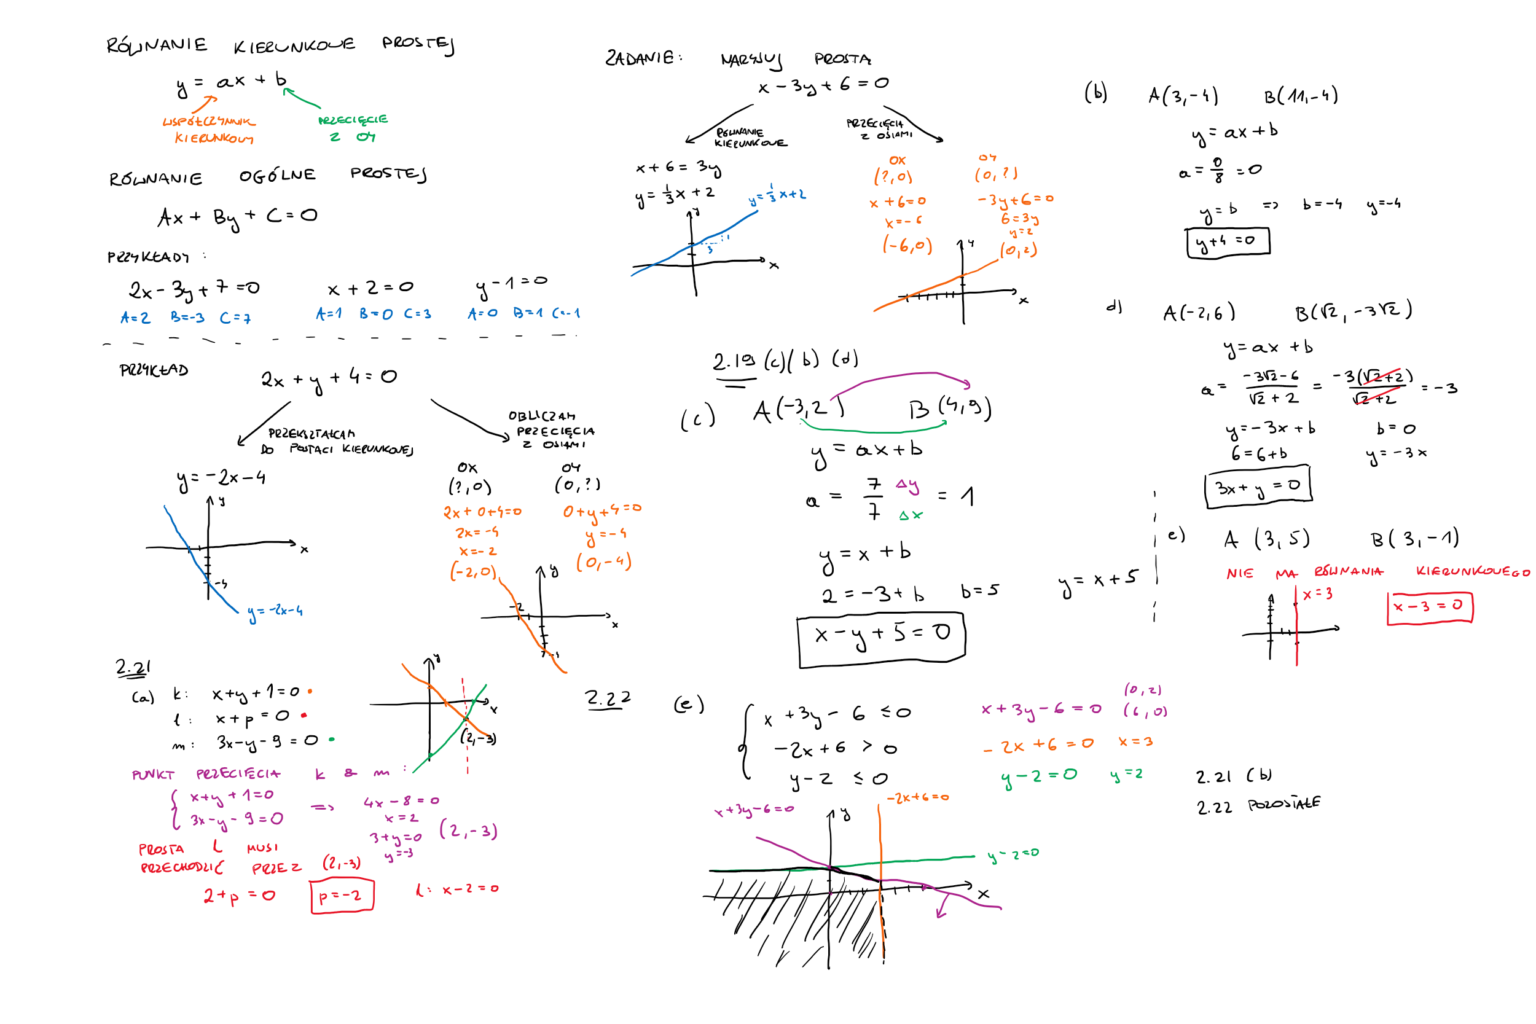 RÓWNANIE KIERUNKOWE PROSTEJ
y = ax + b
WSPÓŁCZYNNIK
KIERUNKOWY
PRZECIĘCIE
Z OY
RÓWNANIE OGÓLNE PROSTEJ
Ax + By + C = 0
PRZYKŁADY:
2x - 3y + 7 = 0
A=2 B=-3 C=7
x + 2 = 0
A=1 B=0 C=3
y - 1 = 0
A=0 B=1 C=-1
PRZYKŁAD
2x + y + 4 = 0
PRZEKSZTAŁCAM
DO POSTACI KIERUNKOWEJ
y = -2x - 4
y
x
-4
y = -2x-4
OBLICZAM
PRZECIĘCIA
Z OSIAMI
OX
(?,0)
2x + 0+4=0
2x = -4
x = -2
(-2,0)
OY
(0,?)
0+y+4=0
y = -4
(0,-4)
y
-2
x
2.21
(a) k: x+y+1=0
l: x+p=0
m: 3x-y-9=0
y
x
(2,-3)
PUNKT PRZECIĘCIA k & m:
x+y+1=0
3x-y-9=0
=> 4x-8=0
x=2
3+y=0
y=-3
(2,-3)
PROSTA L MUSI
PRZECHODZIĆ PRZEZ (2,-3)
2+p=0
p=-2
l: x-2=0
ZADANIE: NARYSUJ PROSTĄ
x - 3y + 6 = 0
RÓWNANIE
KIERUNKOWE
x+6=3y
y = 1/3 x + 2
y = 1/3 x + 2
y
1
3
x
PRZECIĘCIA
Z OSIAMI
OX
(?,0)
x+6=0
x=-6
(-6,0)
OY
(0,?)
-3y+6=0
6=3y
y=2
(0,2)
y
x
2.19 (c)(b)(d)
(c) A(-3,2) B(4,9)
y = ax+b
a = 7/7 Δy/Δx = 1
y = x+b
2 = -3+b b=5 y = x+5
x - y + 5 = 0
2.22 (e)
x+3y-6 ≤ 0
-2x+6 > 0
y-2 ≤ 0
x+3y-6=0 (0,2)
(6,0)
-2x+6=0 x=3
y-2=0 y=2
x+3y-6=0
y
-2x+6=0
y-2=0
x
(b) A(3,-4) B(11,-4)
y = ax+b
a = 0/8 = 0
y = b => b=-4 y=-4
y+4=0
d) A(-2,6) B(√2, -3√2)
y = ax+b
a = (-3√2-6)/(√2+2) = -3(√2+2)/(√2+2) = -3
y = -3x+b b=0
6=6+b y=-3x
3x+y=0
e) A(3,5) B(3,-1)
NIE MA RÓWNANIA KIERUNKOWEGO
x=3
x-3=0
2.21 (b)
2.22 POZOSTAŁE